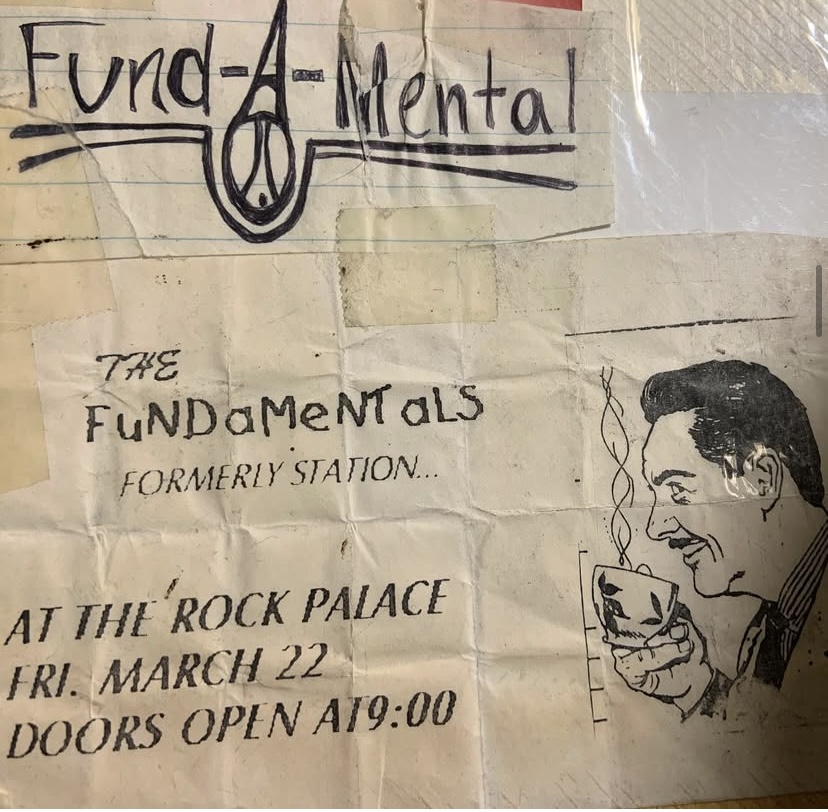 Fund-A-Mental
THE
FuNDaMeNTaLS
FORMERLY STATION...
AT THE ROCK PALACE
FRI. MARCH 22
DOORS OPEN AT 9:00